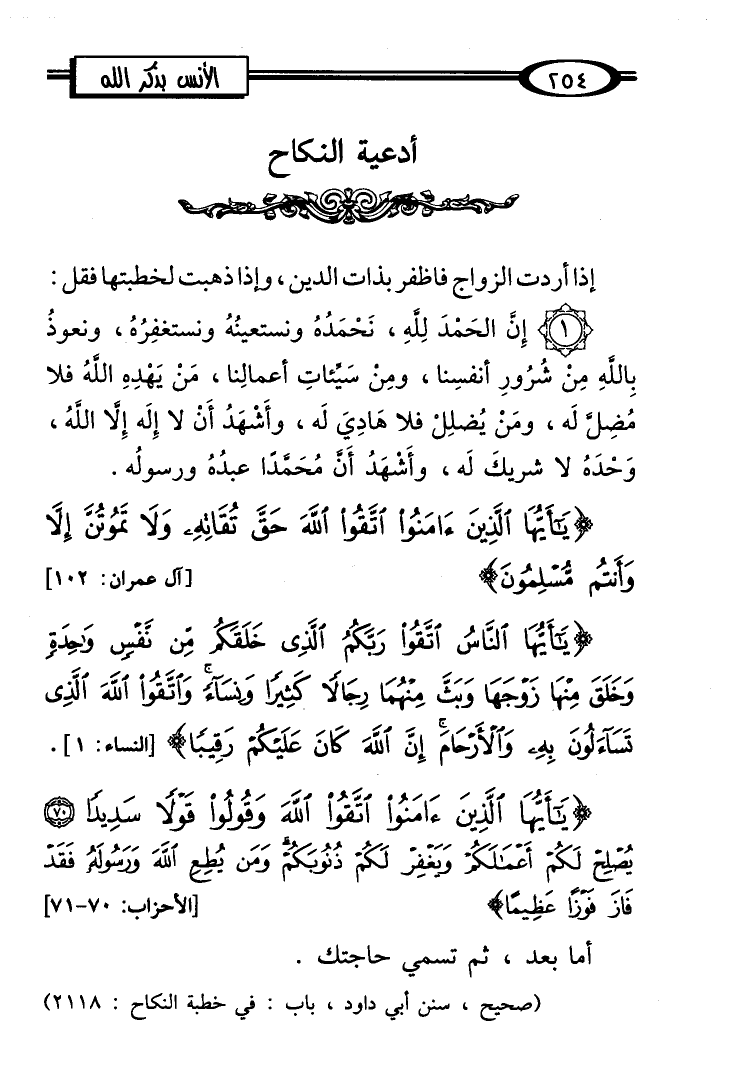 الأنس بذكر الله
٢٥٤
أدعية النكاح
إذا أردت الزواج فاظفر بذات الدين، وإذا ذهبت لخطبتها فقل:
١ إِنَّ الحَمْدَ لِلَّهِ، نَحْمَدُهُ ونستعينُهُ ونستغفِرُهُ، ونعوذُ
بِاللَّهِ مِنْ شُرُورِ أنفسِنا، ومِنْ سَيِّئاتِ أعمالِنا، مَنْ يَهْدِهِ اللَّهُ فلا
مُضِلَّ لَه، ومَنْ يُضلِلْ فلا هادِيَ لَه، وأَشْهَدُ أَنْ لا إِلَه إِلَّا اللَّهُ،
وَحْدَهُ لا شريكَ لَه، وأَشْهَدُ أَنَّ مُحَمَّدًا عبدُهُ ورسولُه.
﴿يَٰٓأَيُّهَا ٱلَّذِينَ ءَامَنُوا۟ ٱتَّقُوا۟ ٱللَّهَ حَقَّ تُقَاتِهِۦ وَلَا تَمُوتُنَّ إِلَّا
وَأَنتُم مُّسْلِمُونَ﴾ [آل عمران: ١٠٢]
﴿يَٰٓأَيُّهَا ٱلنَّاسُ ٱتَّقُوا۟ رَبَّكُمُ ٱلَّذِى خَلَقَكُم مِّن نَّفْسٍ وَٰحِدَةٍ
وَخَلَقَ مِنْهَا زَوْجَهَا وَبَثَّ مِنْهُمَا رِجَالًا كَثِيرًا وَنِسَآءً ۚ وَٱتَّقُوا۟ ٱللَّهَ ٱلَّذِى
تَسَآءَلُونَ بِهِۦ وَٱلْأَرْحَامَ ۚ إِنَّ ٱللَّهَ كَانَ عَلَيْكُمْ رَقِيبًا﴾ [النساء: ١].
﴿يَٰٓأَيُّهَا ٱلَّذِينَ ءَامَنُوا۟ ٱتَّقُوا۟ ٱللَّهَ وَقُولُوا۟ قَوْلًا سَدِيدًا ٧٠
يُصْلِحْ لَكُمْ أَعْمَٰلَكُمْ وَيَغْفِرْ لَكُمْ ذُنُوبَكُمْ ۗ وَمَن يُطِعِ ٱللَّهَ وَرَسُولَهُۥ فَقَدْ
فَازَ فَوْزًا عَظِيمًا﴾ [الأحزاب: ٧٠-٧١]
أما بعد، ثم تسمي حاجتك.
(صحيح، سنن أبي داود، باب: في خطبة النكاح: ٢١١٨)